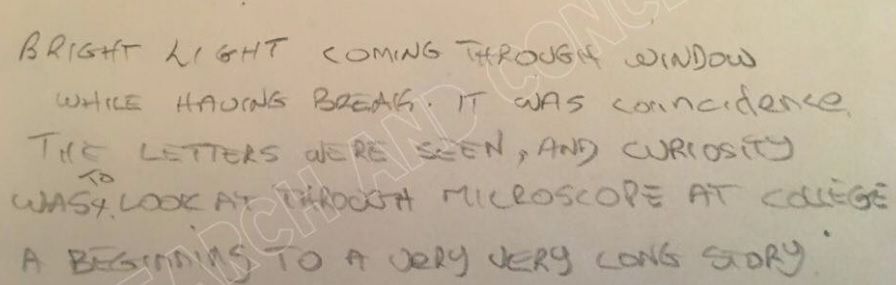 BRIGHT LIGHT COMING THROUGH WINDOW
WHILE HAVING BREAK. IT WAS coincidence
THE LETTERS WERE SEEN, AND CURIOSITY
TO
WAS LOOK AT THROUGH MICROSCOPE AT COLLEGE
A BEGINNING TO A VERY VERY LONG STORY.
ARCH AND CONC